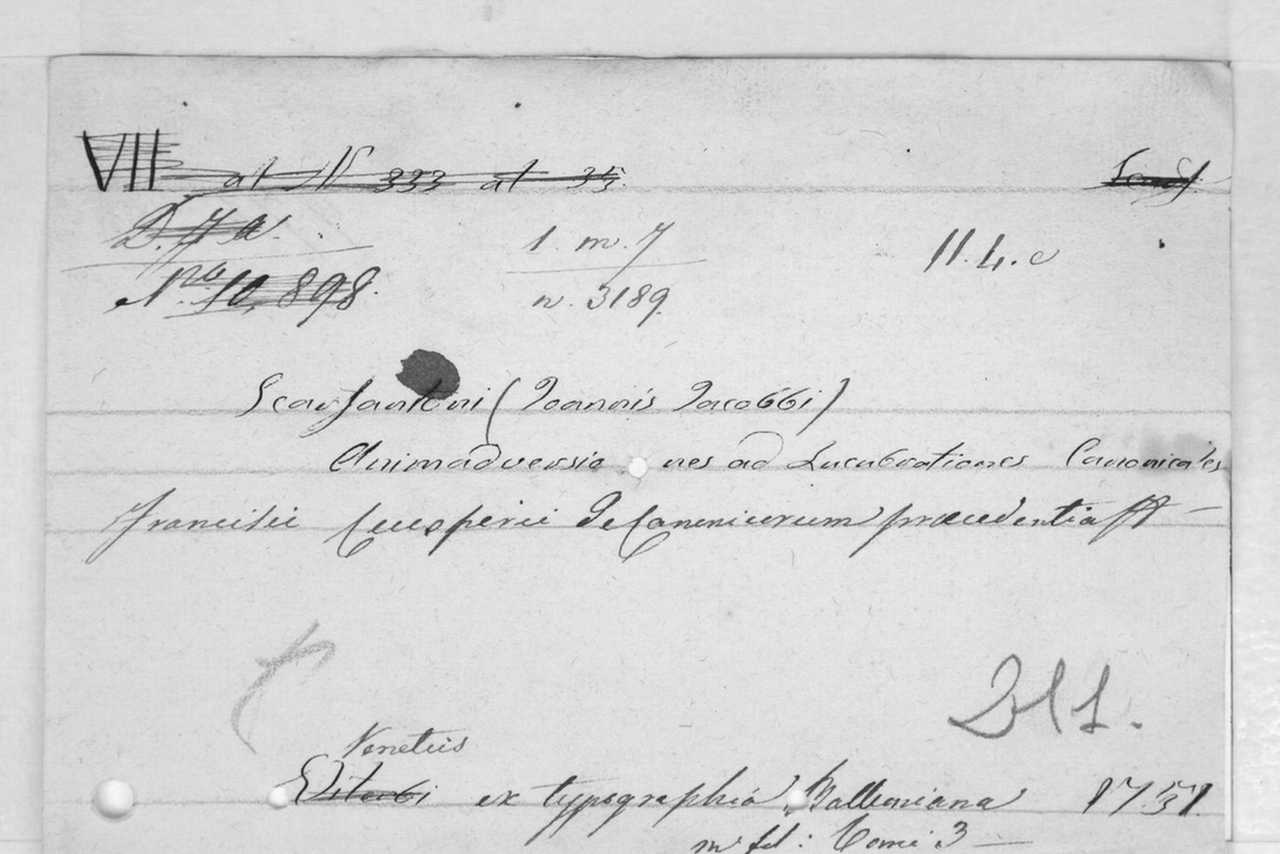 VII at N 333 at 35.
D. ff. a.
1. m. 7
11. 4. c
N.ro 10,898.
n. 3189.
Scarfantoni (Joannis Jacobbi)
Animadversiones ad Lucubrationes Canonicales
Francisci Ceccoperii De Canonicorum præcedentia ff
211.
Venetiis
Viterbi ex typographia Balleoniana 1757.
in fol: Tomi 3